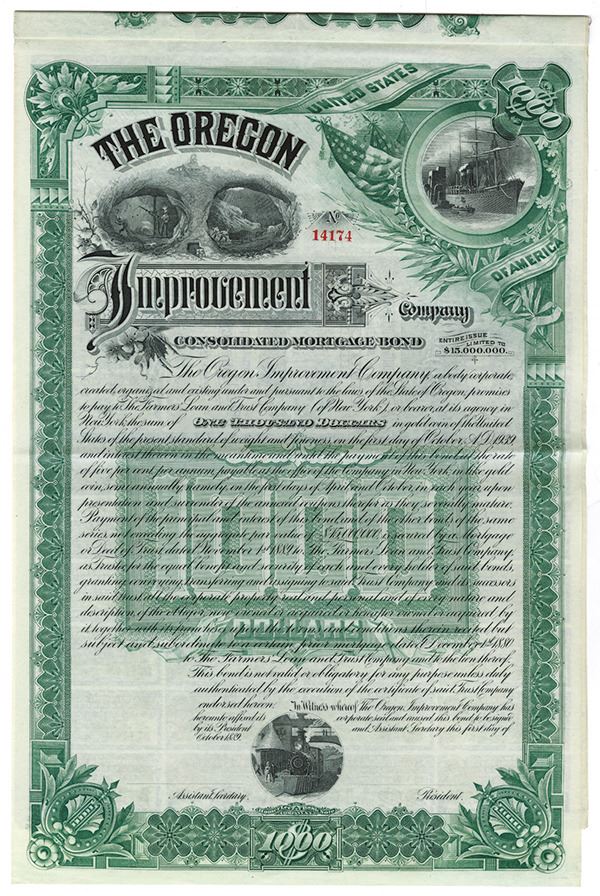 UNITED STATES
$1000
THE OREGON
No
14174
OF AMERICA
Improvement
Company
CONSOLIDATED MORTGAGE BOND
ENTIRE ISSUE
LIMITED TO
$15.000.000.
The Oregon Improvement Company, a body corporate,
created, organized and existing under and pursuant to the laws of the State of Oregon, promises
to pay to The Farmers Loan and Trust Company (of New York), or bearer, at its agency in
New York, the sum of ONE THOUSAND DOLLARS in gold coin of the United
States of the present standard of weight and fineness, on the first day of October A.D. 1939
and interest thereon in the meantime and until the payment of this bond at the rate
of five per cent per annum, payable at the office of its agency in New York in the gold
coin, semi-annually, namely, on the first days of April and October, in each year, upon
presentation and surrender of the annexed coupons therefor as they severally mature.
Payment of the principal and interest of this bond and of the other bonds of the same
series, not exceeding in aggregate par value $15.000.000 is secured by a Mortgage
or Deed of Trust, dated November 1st 1889, to The Farmers Loan and Trust Company,
as Trustee for the equal benefit and security of each and every holder of said bonds,
granting, conveying, transferring and assigning to said Trust Company and its successors
in said trust, all the corporate property, real and personal and of every nature and
description, of the obligor, now owned or acquired or hereafter owned or acquired by
it, together with its franchises, upon the terms and conditions therein recited but
subject and subordinate to a certain prior mortgage dated December 1st 1880
to The Farmers Loan and Trust Company and to the lien thereof.
This bond is not valid or obligatory for any purpose unless duly
authenticated by the execution of the certificate of said Trust Company
endorsed hereon. In Witness whereof The Oregon Improvement Company has
hereunto affixed its corporate seal and caused this bond to be signed
by its President and Assistant Secretary this first day of
October 1889.
1000
DOLLARS
Assistant Secretary.
President.
$1000